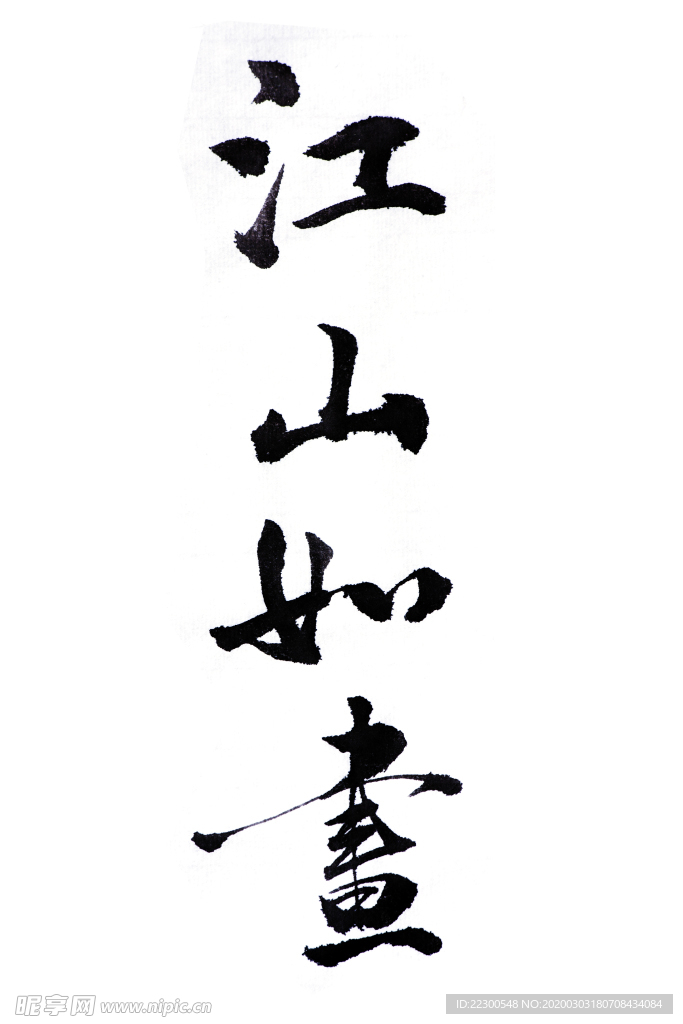 江山如畫
昵享网 www.nipic.cn
ID:22300548 NO:20200303180708434084